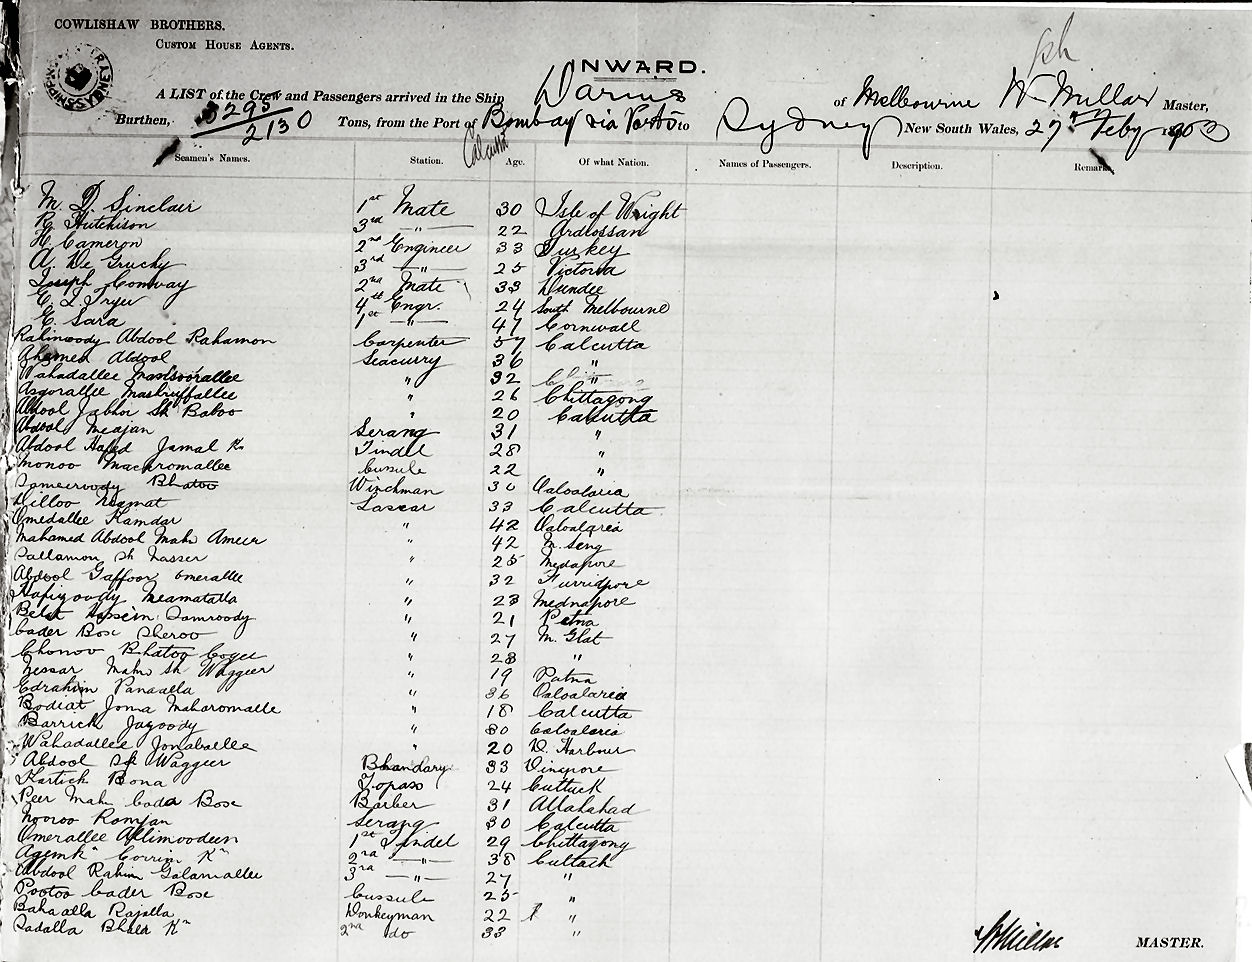 COWLISHAW BROTHERS.
CUSTOM HOUSE AGENTS.
INWARD.
A LIST of the Crew and Passengers arrived in the Ship Darius of Melbourne W Millar Master,
Burthen, 3295 2130 Tons, from the Port of Bombay via Ports to Sydney New South Wales, 27th Feby 1903
Calcutta
Seamen's Names. Station. Age. Of what Nation. Names of Passengers. Description. Remarks.
M. D. Sinclair 1st Mate 30 Isle of Wright
R. Hutchison 3rd " 22 Ardrossan
H. Cameron 2nd Engineer 33 Turkey
A. De Gruchy 3rd " 25 Victoria
Joseph Conway 2nd Mate 33 Dundee
E. L. Fryer 4th Engr. 24 South Melbourne
E. Sara 1st " 47 Cornwall
Rahimoody Abdool Rahamon Carpenter 57 Calcutta
Ahamed Abdool Seacurry 36 "
Wahadallee Mastoorallee " 32 "
Asgorallee Mashruffallee " 26 Chittagong
Abdool Jabhor Sk Baboo " 20 Calcutta
Abdool Meajan Serang 31 "
Abdool Hafed Jamal Kn Tindel 28 "
Monoo Machromallee Cussule 22 "
Sameeroody Bhatoo Winchman 30 Oaloalaria
Dilloo Neamat Lascar 33 Calcutta
Omedallee Kamdar " 42 Oaloalaria
Mahamed Abdool Mahr Ameer " 42 M. Seng
Sallamon Sk Nasser " 25 Medapore
Abdool Gaffoor Omerallee " 32 Furridpore
Hafizoody Neamatalla " 23 Mednapore
Belat Hossein Samroody " 21 Patna
Cader Bose Sheroo " 27 M. Glat
Chonoo Bhatoo Coyee " 28 "
Nessar Mahr Sk Waggeer " 19 Patna
Edrahim Panaalla " 36 Oaloalaria
Bodiat Joma Maharomalle " 18 Calcutta
Barrick Jagoody " 30 Oaloalaria
Wahadallee Jonaballee " 20 D. Harbour
Abdool Sk Waggeer Bhandary 33 Dinepore
Kartick Bona Topass 24 Cuttuck
Peer Mahr Cada Bose Barber 31 Allahahad
Nooroo Romjan Serang 30 Calcutta
Omerallee Allimoodeen 1st Tindel 29 Chittagong
Agemkn Corrim Kn 2nd " 38 Cuttack
Abdool Rahim Golamallee 3rd " 27 "
Pootoo Cader Bose Cussule 25 "
Bahaalla Rajalla Donkeyman 22 "
Sadalla Bhaer Kn 2nd do 33 "
W Millar MASTER.